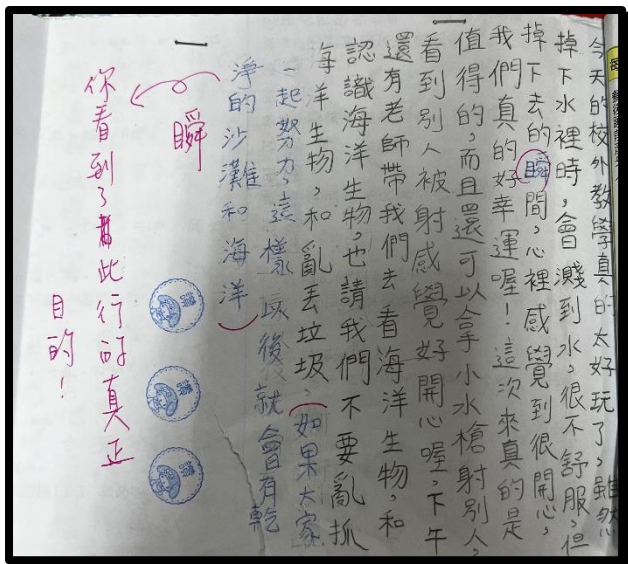 今天的校外教學真的太好玩了,雖然
掉下水裡時,會濺到水,很不舒服,但
掉下去的瞬間,心裡感覺到很開心,
我們真的好幸運喔!這次來真的是
值得的,而且還可以拿小水槍射別人,
看到別人被射感覺好開心喔,下午
還有老師帶我們去看海洋生物,和
認識海洋生物,也請我們不要亂抓
海洋生物,和亂丟垃圾,如果大家
一起努力,這樣以後就會有乾
淨的沙灘和海洋
瞬
你看到了此行的真正
目的!
讚
讚
讚